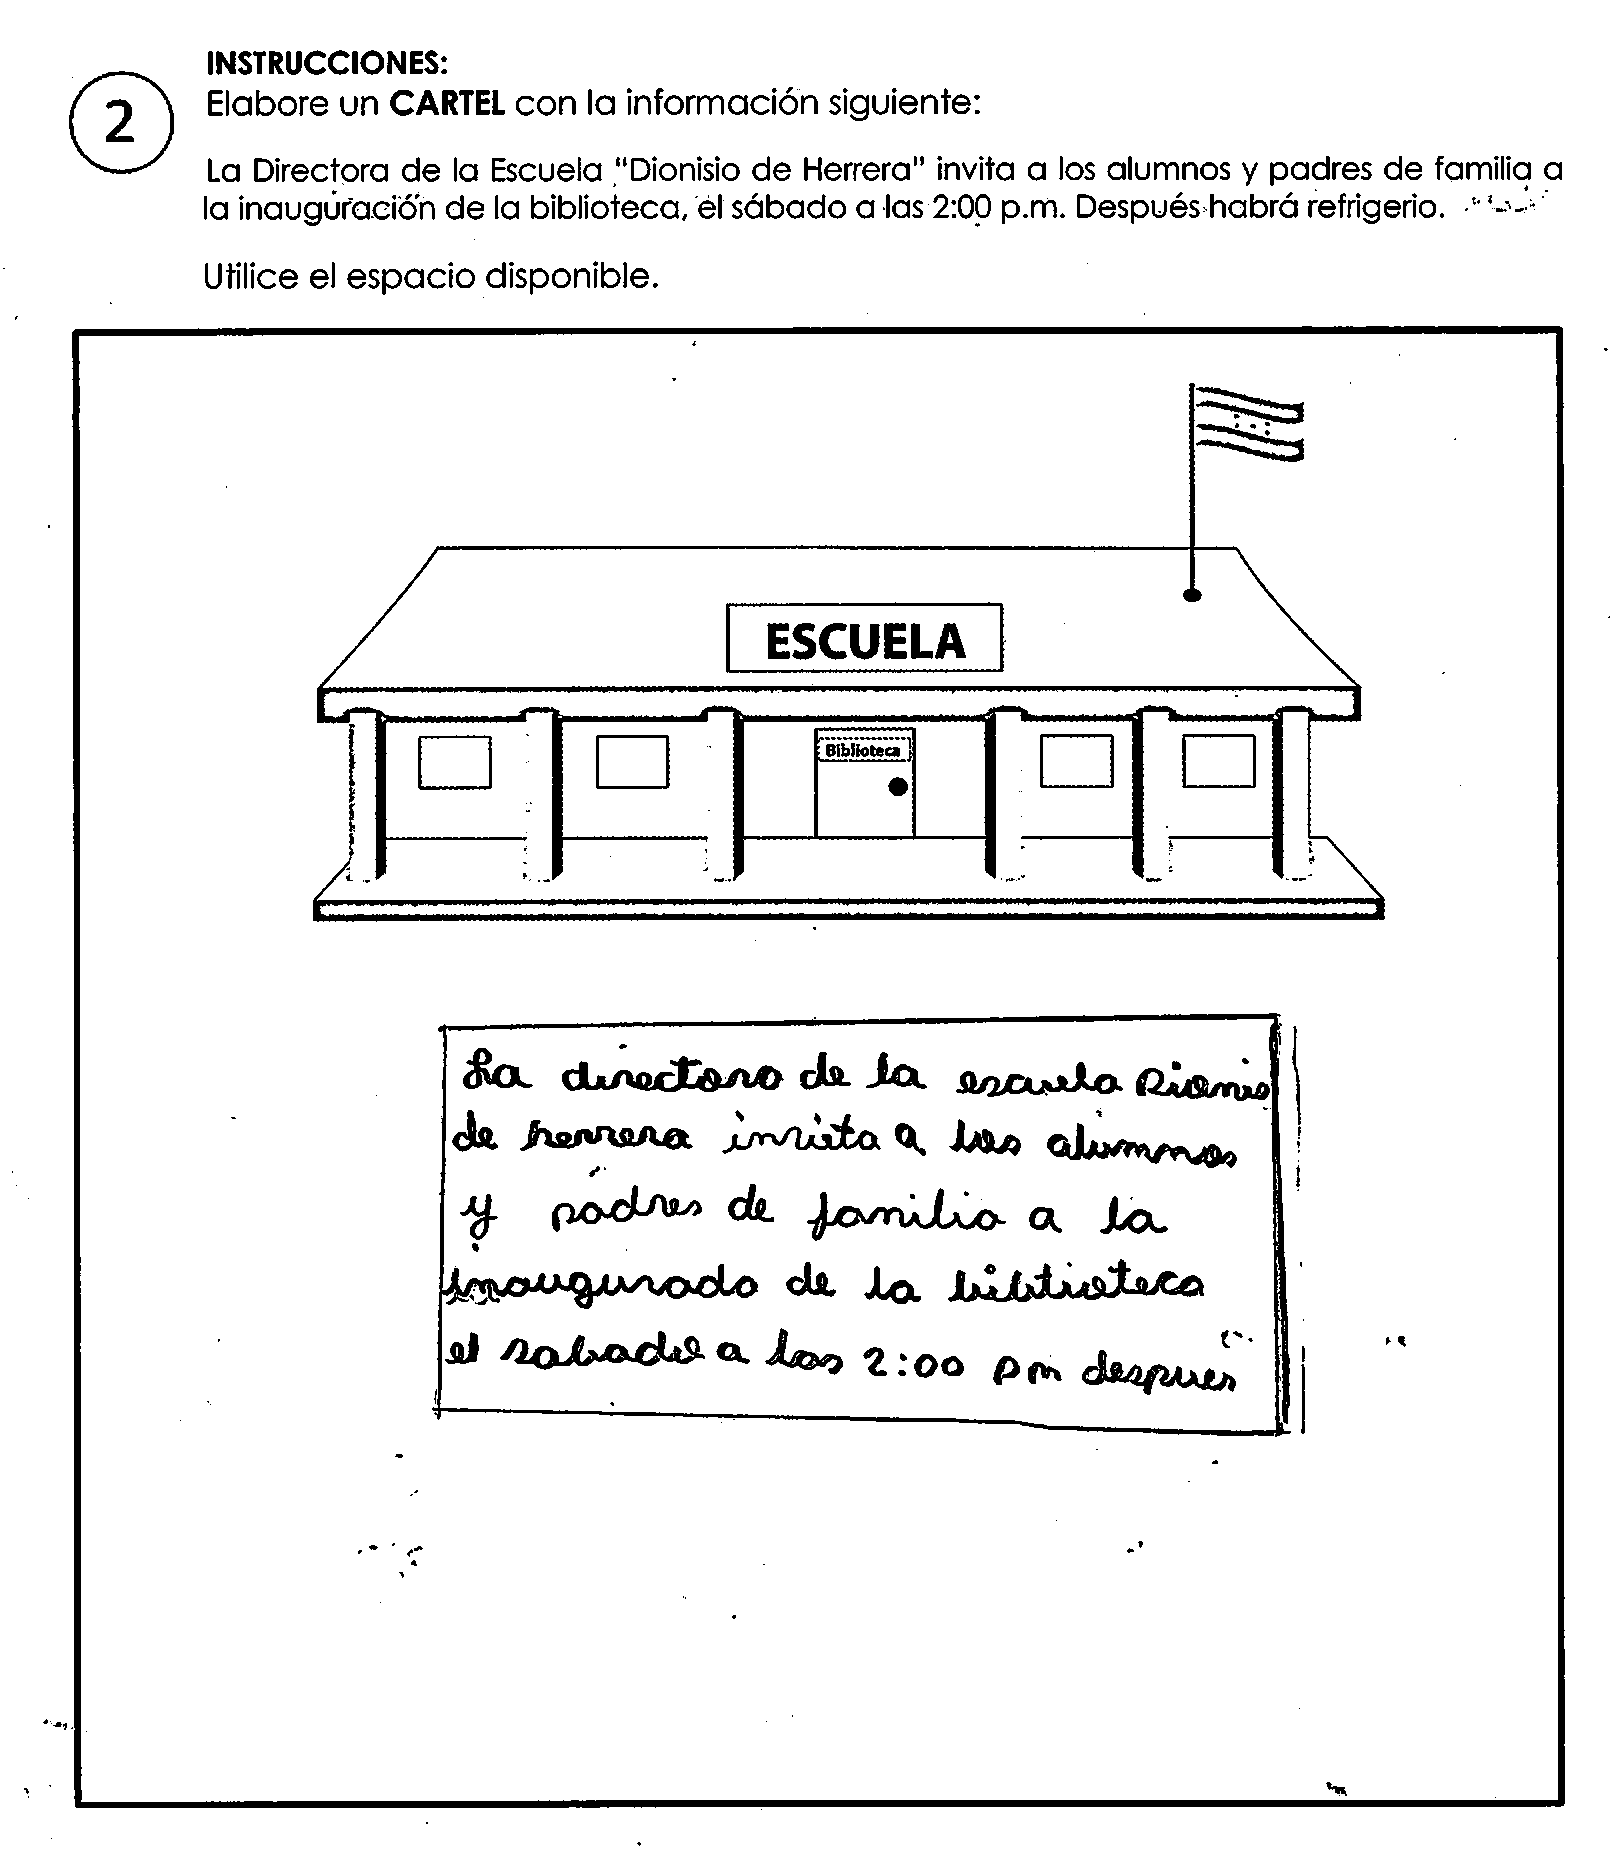 INSTRUCCIONES:
2
Elabore un CARTEL con la información siguiente:
La Directora de la Escuela "Dionisio de Herrera" invita a los alumnos y padres de familia a
la inauguración de la biblioteca, el sábado a las 2:00 p.m. Después habrá refrigerio.
Utilice el espacio disponible.
ESCUELA
Biblioteca
La directora de la escuela Dionis
de herrera invita a los alumnos
y padres de familia a la
inaugurado de la biblioteca
el sabado a las 2:00 pm despues